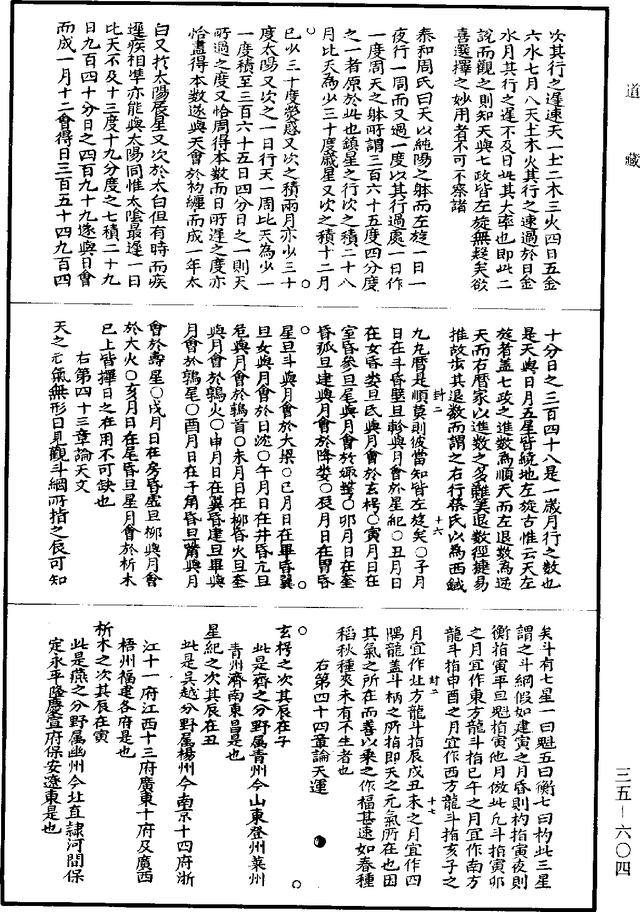 道藏
次其行之遲速天一土二木三火四日五金
六水七月八天土木火其行之速過於日金
水月其行之遲不及日此其大率也即此二
說而觀之則知天與七政皆左旋無疑矣欲
喜選擇之妙用者不可不察諸
泰和周氏曰天以純陽之躰而左旋一日一
夜行一周而又過一度以其行過處一日作
一度周天之躰所謂三百六十五度四分度
之一者原於此也鎮星之行次之積二十八
月比天為少三十度歲星又次之積十二月
已少三十度熒惑又次之積兩月亦少三十
度太陽又次之一日行天一周比天為少一
一度積至三百六十五日四分日之一則天
所過之度又恰周得本數而日所遲之度亦
恰盡得本數遂與天會於初纏而成一年太
白又於太陽辰星又次於太白但有時而疾
遲疾相準亦能與太陽同惟太陰最遲一日
比天不及十三度十九分度之七積二十九
日九百四十分日之四百九十九遂與日會
而成一月十二會得日三百五十四九百四
十分日之三百四十八是一歲月行之數也
是天與日月五星皆繞地左旋古惟云天左
旋者蓋七政之進數為順天而左退數為逆
天而右曆家以進數之多難筭退數徑捷易
推故步其退數而謂之右行蔡氏以為西銊
封二
十六
九九曆是順莫則彼當知皆左旋矣○子月
日在斗昏壁旦軫與月會於星紀○丑月日
在女昏婁旦氐與月會於玄枵○寅月日在
室昏參旦尾與月會於娵訾○卯月日在奎
昏弧旦建與月會於降婁○辰月日在胃昏
星旦斗與月會於大梁○巳月日在畢昏翼
旦女與月會於日沈○午月日在井昏亢旦
危與月會於鶉首○未月日在柳昏火旦奎
與月會於鶉火○申月日在翼昏建旦畢與
月會於鶉尾○酉月日在千角昏旦觜與月
會於壽星○戌月日在房昏虛旦柳與月會
於大火○亥月日在尾昏旦星月會於析木
已上皆擇日之在用不可缺也
右第四十三章論天文
天之元氣無形日見觀斗綱所指之辰可知
矣斗有七星一曰魁五曰衡七曰杓此三星
謂之斗綱假如建寅之月昏則杓指寅夜則
衡指寅平旦魁指寅他月倣此凡斗指寅卯
之月宜作東方龍斗指巳午之月宜作南方
龍斗指申酉之月宜作西方龍斗指亥子之
封二
十七
月宜作北方龍斗指辰戌丑未之月宜作四
隅龍蓋斗柄之所指即天之元氣所在也因
其氣之所在而善以乘之作福甚速如春種
稻秋種麥未有不生者也
右第四十四章論天運
玄枵之次其辰在子
此是齊之分野属青州今山東登州萊州
青州濟南東昌是也
星紀之次其辰在丑
此是吳越分野属楊州今南京十四府浙
江十一府江西十三府廣東十府及廣西
梧州福建各府是也
析木之次其辰在寅
此是燕之分野属幽州今北直隷河間保
定永平隆慶宣府保安遼東是也
三五-六〇四